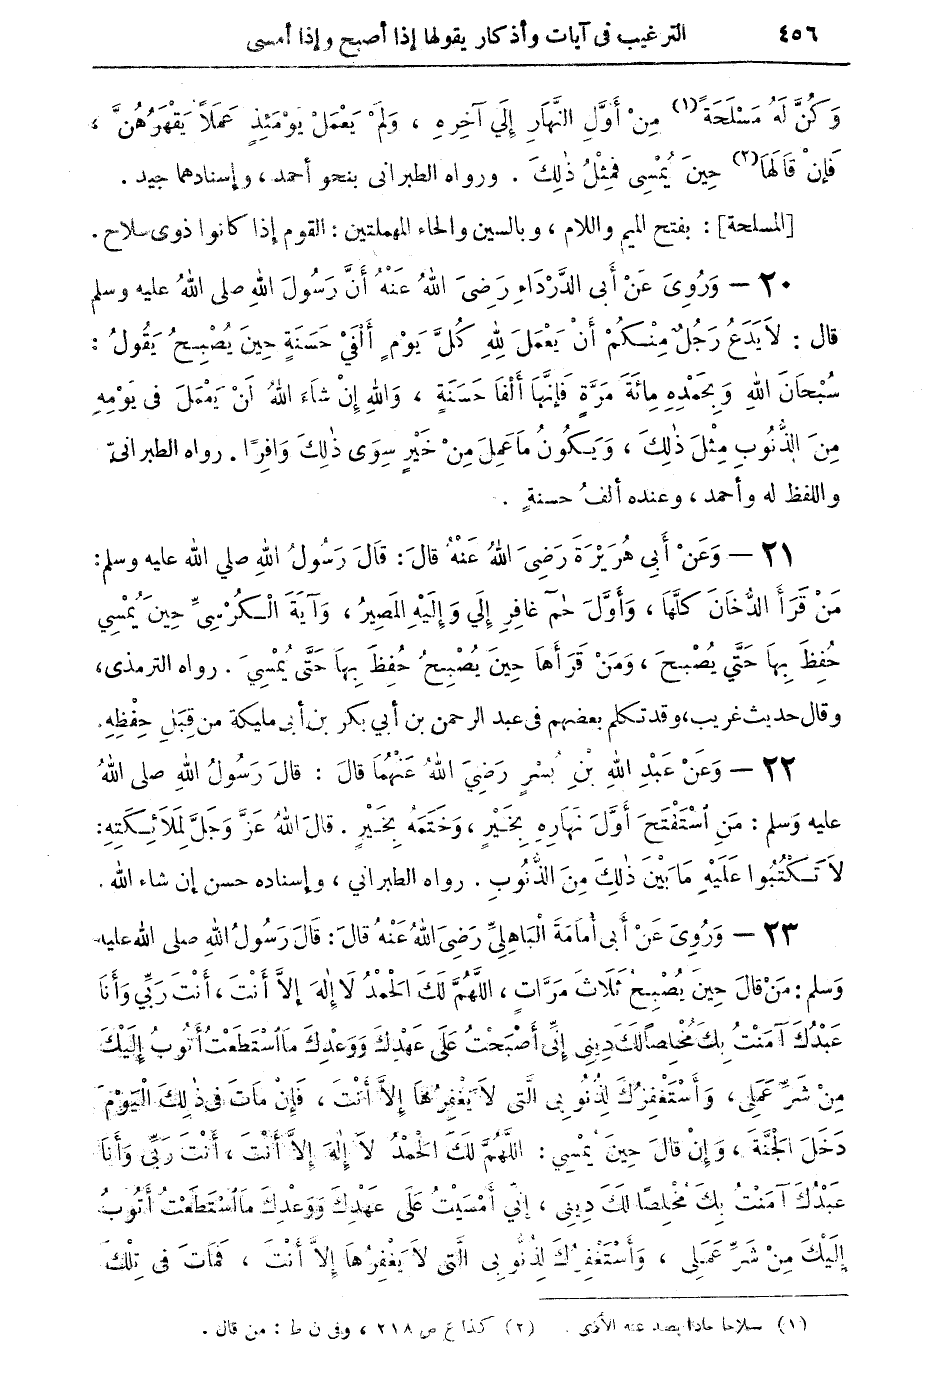 ٤٥٦ الترغيب فى آيات وأذكار يقولها إذا أصبح وإذا أمسى
وَكُنَّ لَهُ مَسْلَحَةً (١) مِنْ أَوَّلِ النَّهَارِ إِلَي آخِرِهِ ، وَلَمْ يَعْمَلْ يَوْمَئِذٍ عَمَلاً يَقْهَرُهُنَّ ،
فَإِنْ قَالَهَا (٢) حِينَ يُمْسِى فَمِثْلُ ذٰلِكَ . ورواه الطبرانى بنحو أحمد ، وإسنادهما جيد .
[المسلحة] : بفتح الميم واللام ، وبالسين والحاء المهملتين : القوم إذا كانوا ذوى سلاح .
٢٠ — وَرُوِىَ عَنْ أَبى الدَّرْدَاءِ رَضِىَ اللهُ عَنْهُ أَنَّ رَسُولَ اللهِ صلى اللهُ عليه وسلم
قال : لاَ يَدَعُ رَجُلٌ مِنْكُمْ أَنْ يَعْمَلَ لِلهِ كُلَّ يَوْمٍ أَلْفَيْ حَسَنَةٍ حِينَ يُصْبِحُ يَقُولُ :
سُبْحَانَ اللهِ وَبِحَمْدِهِ مِائَةَ مَرَّةٍ فَإِنَّهَا أَلْفَا حَسَنَةٍ ، وَاللهِ إِنْ شَاءَ اللهُ لَنْ يَعْمَلَ فى يَوْمِهِ
مِنَ الذُّنُوبِ مِثْلَ ذٰلِكَ ، وَيَكُونُ مَا عَمِلَ مِنْ خَيْرٍ سِوَى ذٰلِكَ وَافِرًا . رواه الطبرانىّ
واللفظ له وأحمد ، وعنده ألفُ حسنةٍ .
٢١ — وَعَنْ أَبِي هُرَيْرَةَ رَضِىَ اللهُ عَنْهُ قالَ : قَالَ رَسُولُ اللهِ صلي الله عليه وسلم :
مَنْ قَرَأَ الدُّخَانَ كلَّهَا ، وَأَوَّلَ حٰم غافِرِ إِلَي وَإِلَيْهِ المَصِيرُ ، وَآيَةَ الْكُرْسِيِّ حِينَ يُمْسِي
حُفِظَ بِهَا حَتَّي يُصْبِحَ ، وَمَنْ قَرَأَهَا حِينَ يُصْبِحُ حُفِظَ بِهَا حَتَّى يُمْسِيَ . رواه الترمذى،
وقال حديث غريب، وقد تكلم بعضهم فى عبد الرحمن بن أبي بكر بن أبى مليكة من قِبَلِ حِفْظِهِ.
٢٢ — وَعَنْ عَبْدِ اللهِ بْنِ بُسْرٍ رَضِيَ اللهُ عَنْهُمَا قالَ : قالَ رَسُولُ اللهِ صلى اللهُ
عليه وَسلم : مَنِ اسْتَفْتَحَ أَوَّلَ نَهَارِهِ بِخَيْرٍ ، وَخَتَمَهُ بِخَيْرٍ . قالَ اللهُ عَزَّ وَجَلَّ لِمَلَائِكَتِهِ:
لاَ تَكْتُبُوا عَلَيْهِ مَا بَيْنَ ذٰلِكَ مِنَ الذُّنُوبِ . رواه الطبراني ، وإسناده حسن إن شاء الله .
٢٣ — وَرُوِىَ عَنْ أَبى أُمَامَةَ الْبَاهِلِيِّ رَضِىَ اللهُ عَنْهُ قالَ : قَالَ رَسُولُ اللهِ صلى الله عليه
وَسلم : مَنْ قالَ حِينَ يُصْبِحُ ثَلَاثَ مَرَّاتٍ ، اللَّهُمَّ لَكَ الْحَمْدُ لَا إِلٰهَ إِلاَّ أَنْتَ ، أَنْتَ رَبِّي وَأَنَا
عَبْدُكَ آمَنْتُ بِكَ مُخْلِصًا لَكَ دِينِى إِنِّى أَصْبَحْتُ عَلَى عَهْدِكَ وَوَعْدِكَ مَا اسْتَطَعْتُ أَتُوبُ إِلَيْكَ
مِنْ شَرِّ عَمَلِى، وَأَسْتَغْفِرُكَ لِذُنُوبِى الَّتى لاَ يَغْفِرُهَا إِلاَّ أَنْتَ ، فَإِنْ مَاتَ فى ذٰلِكَ الْيَوْمِ
دَخَلَ الْجَنَّةَ ، وَإِنْ قالَ حِينَ يُمْسِي : اللَّهُمَّ لَكَ الْحَمْدُ لَا إِلٰهَ إِلاَّ أَنْتَ ، أَنْتَ رَبِّى وَأَنَا
عَبْدُكَ آمَنْتُ بِكَ مُخْلِصًا لَكَ دِينِى ، إِنِّي أَمْسَيْتُ عَلَى عَهْدِكَ وَوَعْدِكَ مَا اسْتَطَعْتُ أَتُوبُ
إِلَيْكَ مِنْ شَرِّ عَمَلِى ، وَأَسْتَغْفِرُكَ لِذُنُوبِى الَّتِى لاَ يَغْفِرُهَا إِلاَّ أَنْتَ ، فَمَاتَ فى تِلْكَ
(١) سلاحا حادا يصد عنه الأذى . (٢) كذا ع ص ٢١٨ ، وفى ن ط : من قال .